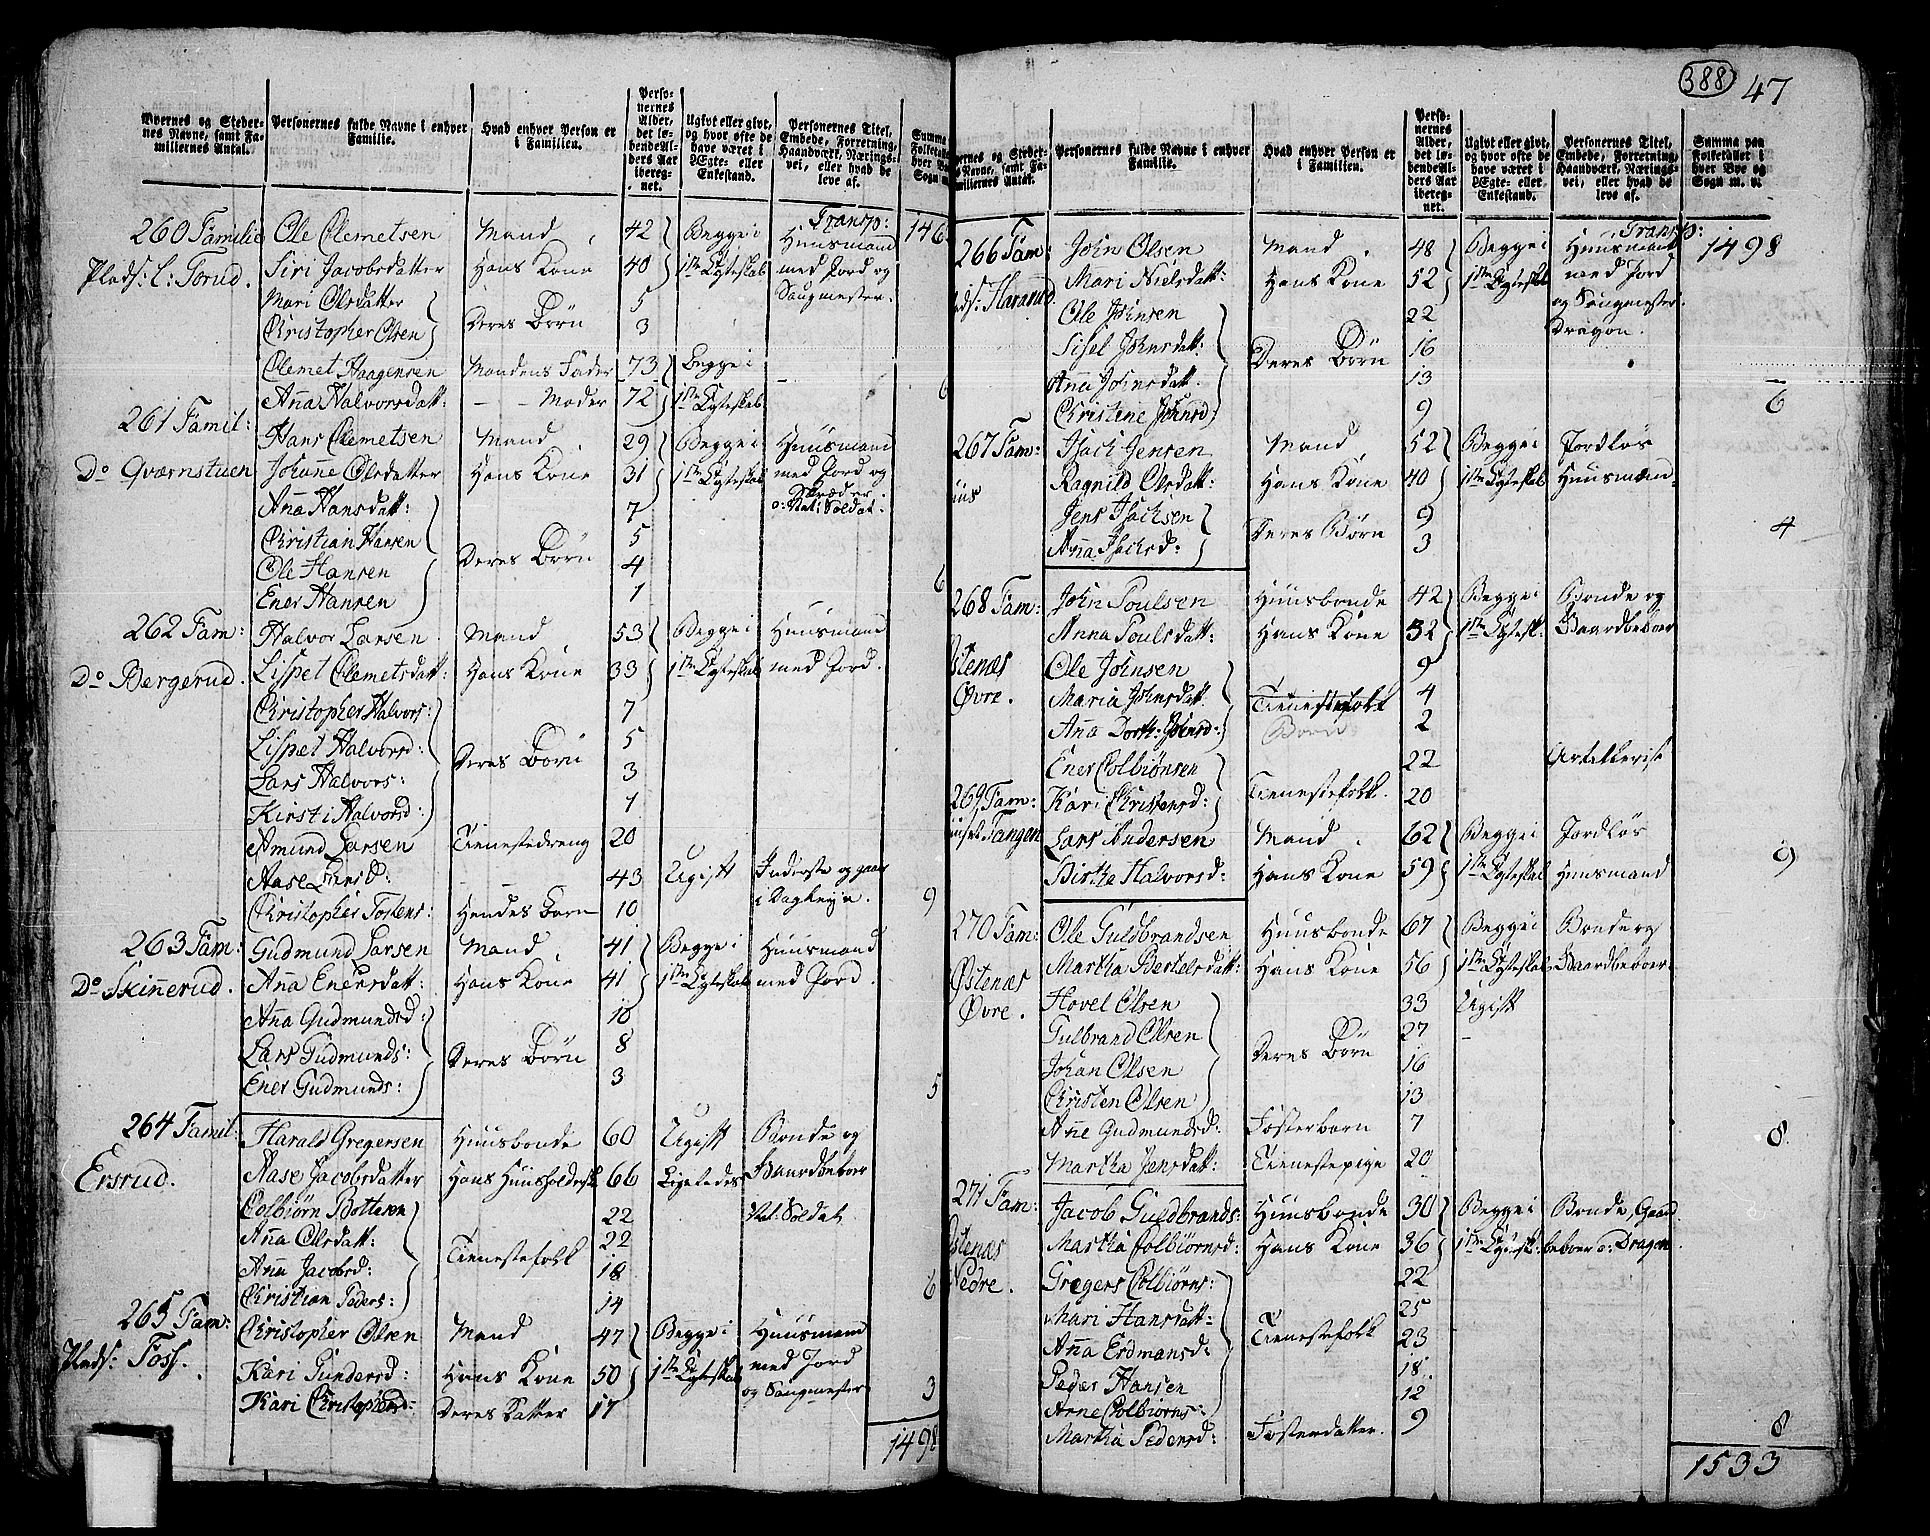 388 47
Byernes og Steder- nes Navne, samt Fa- miliernes Antal. | Personernes fulde Navne i enhver Familie. | Hvad enhver Person er i Familien. | Perso- nernes Alder, det lø- bende Al- ders Aar iberegnet. | Ugivt eller givt, og hvor ofte de have været i Egte- eller Enkestand. | Personernes Titel, Embede, Forretning, Haandværk, Nærings- vei, eller hvad de leve af. | Summa Folketal hver By Sogn m.
Transp: 146
260 Familie Ole Clemetsen Mand 42 Begge i Huusmand
Plads: l: Torud. Siri Jacobsdatter Hans Kone 40 1ste Egteskab med Jord og
Mari Olsdatter 5 Saugmester.
Christopher Olsen Deres Børn 3
Clemet Haagensen Mandens Fader 73 Begge i
Anna Halvorsdatt: - - Moder 72 1ste Egteskab 6
261 Famil: Hans Clemetsen Mand 29 Begge i Huusmand
Do Qværnstuen Johanne Olsdatter Hans Kone 31 1ste Egteskab med Jord og
Anna Hansdatt: 7 Skræder o: Nat: Soldat.
Christian Hansen 5
Ole Hansen Deres Børn 4
Ener Hansen 1 6
262 Fam: Halvor Larsen Mand 53 Begge i Huusmand
Do Bergerud. Lispet Clemetsdatt: Hans Kone 33 1ste Egteskab med Jord.
Christopher Halvors: 7
Lispet Halvorsd: Deres Børn 5
Lars Halvors: 3
Kirsti Halvorsd: 1
Amund Larsen Tienestedreng 20
Aase Larsd: 43 Ugift Inderste og gaar
Christopher Tostens: Hendes Barn 10 i Dagleye. 9
263 Fam: Gudmund Larsen Mand 41 Begge i Huusmand
Do Skinnerud. Anna Enersdatt: Hans Kone 41 1ste Egteskab med Jord.
Anna Gudmundsd: 10
Lars Gudmunds: Deres Børn 8
Ener Gudmunds: 3 5
264 Famil: Harald Gregersen Huusbonde 60 Ugift Bonde og
Ersrud. Aase Jacobsdatter Hans Huusholdersk 66 Ligeledes Gaardbeboer
Colbiørn Bottersen 22 Nat: Soldat
Anna Olsdatt: Tienestefolk 22
Anna Jacobsd: 18
Christian Peders: 14 6
265 Fam: Christopher Olsen Mand 47 Begge i Huusmand
Plads: Foss. Kari Gundersd: Hans Kone 50 1ste Egteskab med Jord
Kari Christophersd: Deres Datter 17 og Saugmester 3
1498
Byernes og Steder- nes Navne, samt Fa- miliernes Antal. | Personernes fulde Navne i enhver Familie. | Hvad enhver Person er i Familien. | Perso- nernes Alder, det lø- bende Al- ders Aar iberegnet. | Ugivt eller givt, og hvor ofte de have været i Egte- eller Enkestand. | Personernes Titel, Embede, Forretning, Haandværk, Nærings- vei, eller hvad de leve af. | Summa paa Folketallet i hver Bye og Sogn m. v.
Transp: 1498
266 Fam: John Olsen Mand 48 Begge i Huusmand
Mari Nielsdatt: Hans Kone 52 1ste Egteskab med Jord
Ole Johnsen 22 og Saugmester. Dragon.
Sisel Johnsdatt: Deres Børn 16
Anna Johnsdatt. 13
Christine Johnsd: 9 6
267 Fam: Isach Jensen Mand 52 Begge i Jordløs
Ragnild Olsdatt: Hans Kone 40 1ste Egteskab Huusmand
Jens Isachsen Deres Børn 9
Anna Isachsd: 3 4
268 Fam: John Poulsen Huusbonde 42 Begge i Bonde og
Anna Poulsdatt: Hans Kone 32 1ste Egtesk: Gaardbeboer
Østenæs Ole Johnsen 9
Øvre. Maria Johnsdatt: Tienestefolk 4
Anna Dorth: Johnsd: Børn 2
Ener Colbiønsen 22 Artellerist
269 Fam: Kari Christensd: Tienestefolk. 20
Tangen Lars Andersen Mand 62 Begge i Jordløs
Birthe Halvorsd: Hans Kone 59 1ste Egteskab Huusmand 9
270 Fam: Ole Guldbrandsen Huusbonde 67 Begge i Bonde og
Østenæs Martha Bertelsdatt: Hans Kone 56 1ste Egteskab Gaardbeboer
Øvre. Hovel Olsen 33 Ugift
Gulbrand Olsen 27 -
Johan Olsen Deres Børn 16
Christen Olsen 13
Anne Gudmundsd: Fosterbarn 7
Martha Jensdatt: Tienestepige 20 8.
271 Fam: Jacob Guldbrands: Huusbonde 30 Begge i Bonde, Gaard
Østenæs Martha Colbiørnsd: Hans Kone 36 1ste Egtesk: beboer o: Dragon
Nedre. Gregers Colbiørns: 22
Mari Hansdatt: 25
Anna Erdmansd: Tienestefolk 23
Peder Hansen 18
Arne Colbiørns: 12
Martha Pedersd: Fosterdatter. 9 8
1533